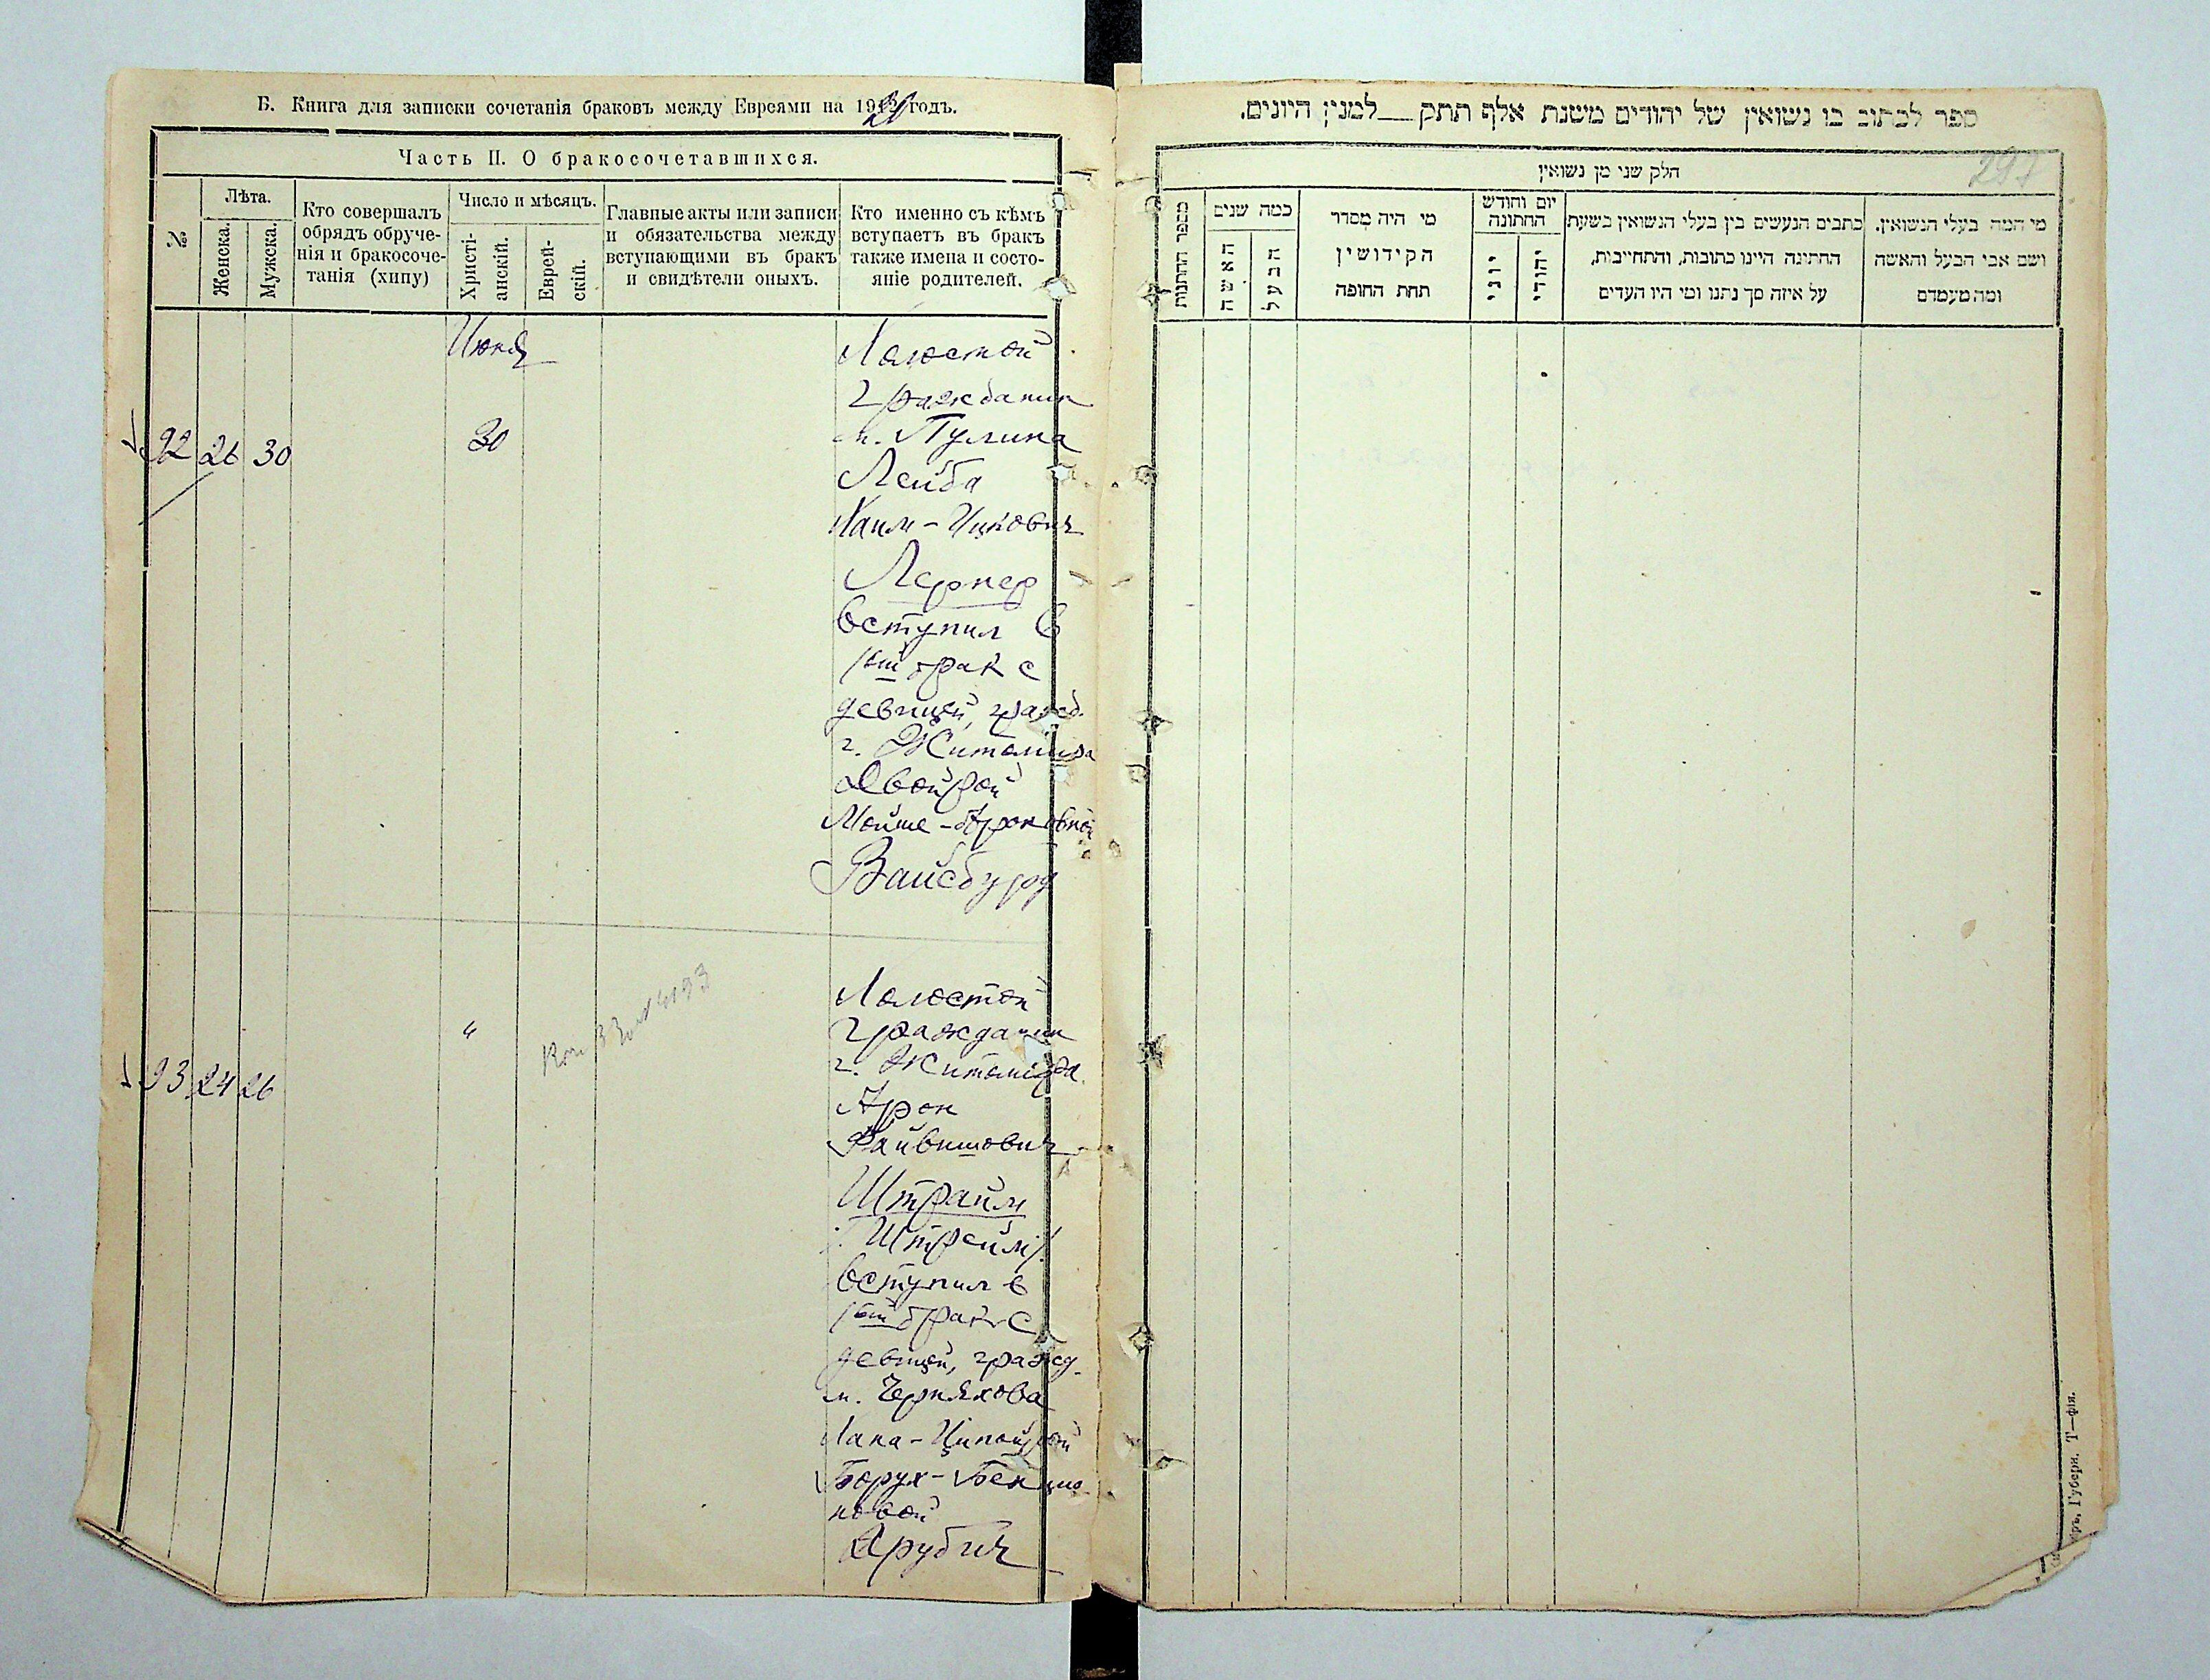 Б. Книга для записки сочетанія браковъ между Евреями на 1920 годъ.
Часть II. О бракосочетавшихся.
№
Лѣта.
Женска.
Мужска.
Кто совершалъ
обрядъ обруче-
нія и бракосоче-
танія (хипу)
Число и мѣсяцъ.
Христі-
анскій.
Еврей-
скій.
Главные акты или записи
и обязательства между
вступающими въ бракъ
и свидѣтели оныхъ.
Кто именно съ кѣмъ
вступаетъ въ бракъ
также имена и состо-
яніе родителей.
Июня
92 26 30
30
Холостой
гражданин
м. Пулина
Лейба
Хаим-Ицкович
Лернер
вступил в
1ый брак с
девицей, гражд.
г. Житомира
Двойрой
Мойше-Ароновной
Вайсбурд
93 24 26
"
Холостой
гражданин
г. Житомира
Арон
Файвишович
Штрайм
/Штрейм/
вступил в
1ый брак с
девицей, гражд.
м. Черняхова
Хана-Ципойрой
Борух-Бенцио-
новой
Друбич
ספר לכתוב בו נשואין של יהודים משנת אלף תתק__למנין היונים.
297
חלק שני מן נשואין
מספר החתנות
כמה שנים
האשה
הבעל
מי היה מסדר
הקידושין
תחת החופה
יום וחודש
החתונה
יוני
יהודי
כתבים הנעשים בין בעלי הנשואין בשעת
החתינה היינו כתובות, והתחייבות,
על איזה סך נתנו ומי היו העדים
מי המה בעלי הנשואין.
ושם אבי הבעל והאשה
ומה מעמדם
Губерн. Т—фія.